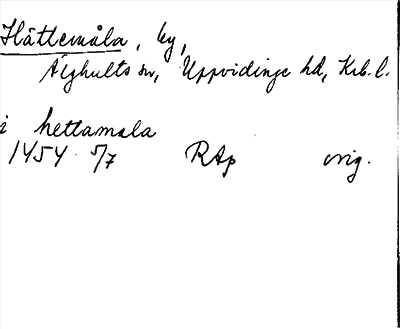 Hättemåla, by,
Älghults sn, Uppvidinge hd, Krb. l.
i hettamala
1454 5/7 RAp orig.